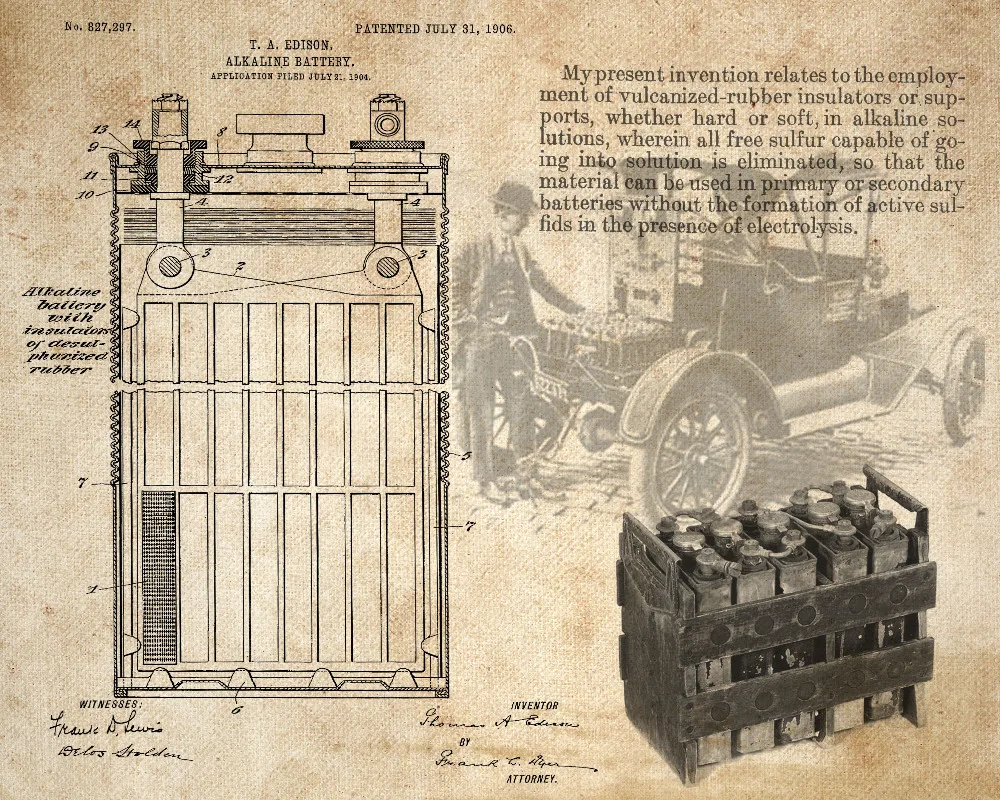 No. 827,297.
PATENTED JULY 31, 1906.
T. A. EDISON.
ALKALINE BATTERY.
APPLICATION FILED JULY 21, 1904.
My present invention relates to the employ-
ment of vulcanized-rubber insulators or sup-
ports, whether hard or soft, in alkaline so-
lutions, wherein all free sulfur capable of go-
ing into solution is eliminated, so that the
material can be used in primary or secondary
batteries without the formation of active sul-
fids in the presence of electrolysis.
14
13
9
8
11
12
10
4
4
3
3
2
Alkaline
battery
with
insulators
of desul-
phurized
rubber
5
7
7
1
6
WITNESSES:
Frank D. Lewis
Delos Holden
INVENTOR
Thomas A Edison
BY
Frank L. Dyer
ATTORNEY.